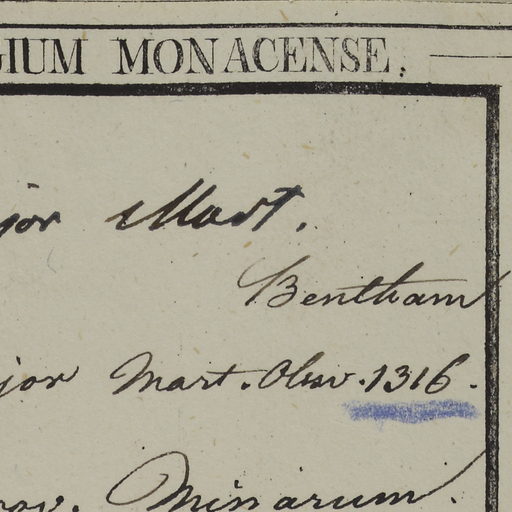 GIUM MONACENSE.
jor Mart.
Bentham
jor Mart. Obsv. 1316.
rov. Minarum.